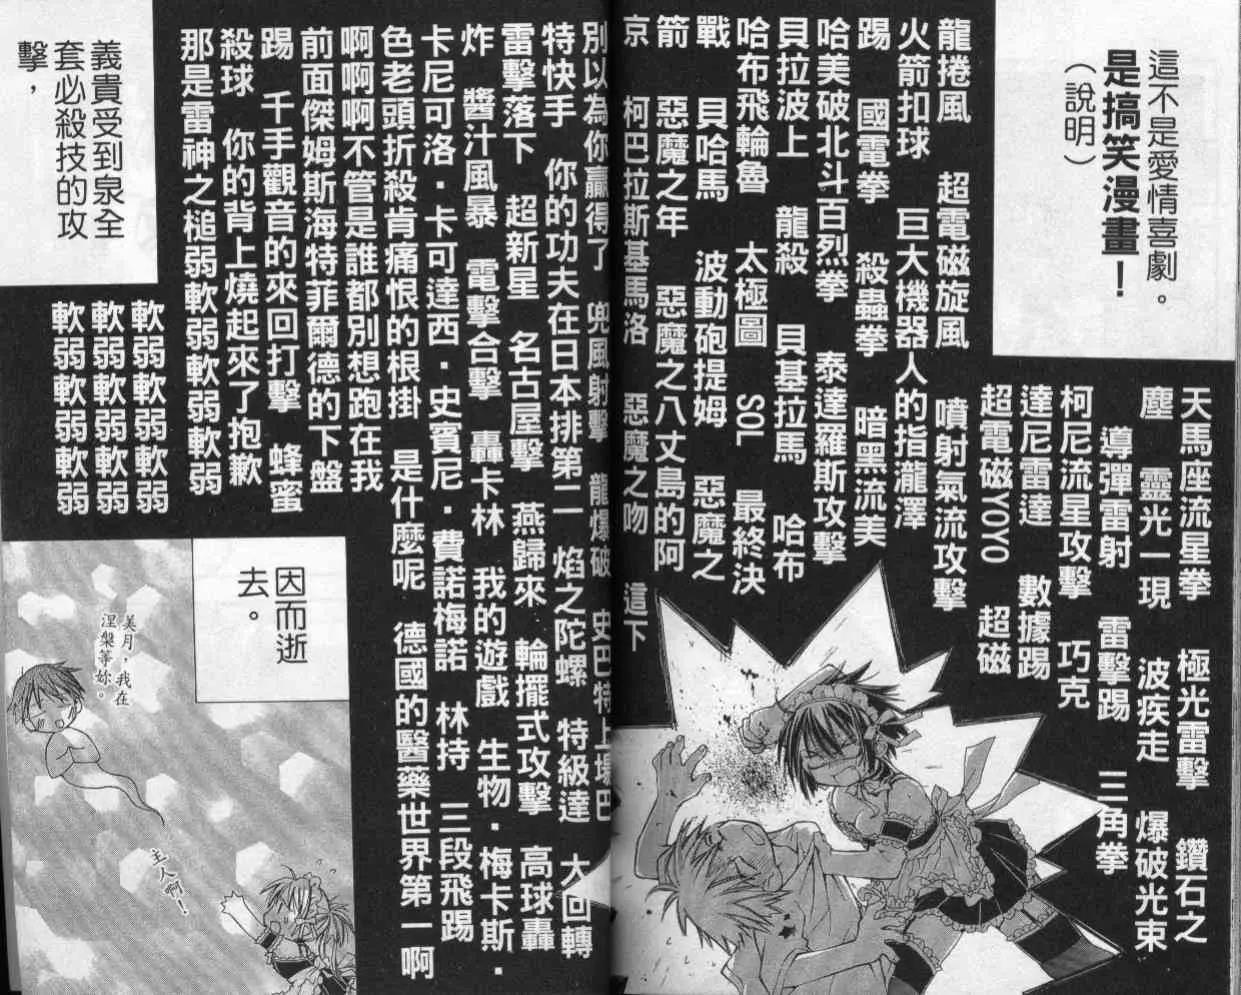 這不是愛情喜劇。
是搞笑漫畫！
（說明）
天馬座流星拳　極光雷擊　鑽石之
塵　靈光一現　波疾走　爆破光束
導彈雷射　雷擊踢　三角拳
柯尼流星攻擊　巧克
達尼雷達　數據踢
超電磁YOYO　超磁
龍捲風　超電磁旋風　噴射氣流攻擊
火箭扣球　巨大機器人的指瀧澤
踢　國電拳　殺蟲拳　暗黑流美
哈美破北斗百烈拳　泰達羅斯攻擊
貝拉波上　龍殺　貝基拉馬　哈布
哈布飛輪魯　太極圖　SOL　最終決
戰　貝哈馬　波動砲提姆　惡魔之
箭　惡魔之年　惡魔之八丈島的阿
京　柯巴拉斯基馬洛　惡魔之吻　這下
別以為你贏得了　兜風射擊　龍爆破　史巴特上場巴
特快手　你的功夫在日本排第二　焰之陀螺　特級達　大回轉
雷擊落下　超新星　名古屋擊　燕歸來　輪擺式攻擊　高球轟
炸　醬汁風暴　電擊合擊　轟卡林　我的遊戲　生物・梅卡斯・
卡尼可洛・卡可達西・史賓尼・費諾梅諾　林持　三段飛踢
色老頭折殺肯痛恨的根掛　是什麼呢　德國的醫藥世界第一啊
啊啊啊不管是誰都別想跑在我
前面傑姆斯海特菲爾德的下盤
踢　千手觀音的來回打擊　蜂蜜
殺球　你的背上燒起來了抱歉
那是雷神之槌弱軟弱軟弱軟弱
軟弱軟弱軟弱軟弱
軟弱軟弱軟弱軟弱
軟弱軟弱軟弱軟弱
義貴受到泉全
套必殺技的攻
擊，
因而逝
去。
美月，我在
涅槃等妳。
主人啊！